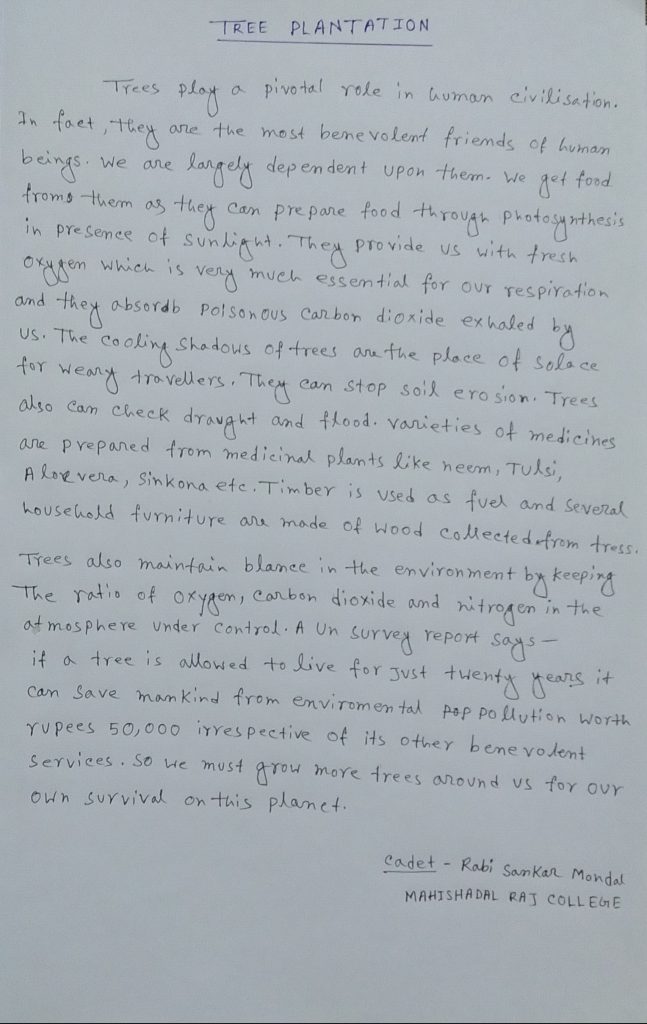 TREE PLANTATION
Trees play a pivotal role in human civilisation.
In fact, they are the most benevolent friends of human
beings. we are largely dependent upon them. we get food
from them as they can prepare food through photosynthesis
in presence of sunlight. They provide us with fresh
oxygen which is very much essential for our respiration
and they absordb poisonous carbon dioxide exhaled by
us. The cooling shadows of trees are the place of solace
for weary travellers. They can stop soil erosion. Trees
also can check draught and flood. varieties of medicines
are prepared from medicinal plants like neem, Tulsi,
Aloe vera, Sinkona etc. Timber is used as fuel and several
household furniture are made of wood collected from tress.
Trees also maintain blance in the environment by keeping
The ratio of oxygen, carbon dioxide and nitrogen in the
atmosphere under control. A Un survey report says —
if a tree is allowed to live for just twenty years it
can save mankind from enviromental pop pollution worth
rupees 50,000 irrespective of its other benevolent
services. So we must grow more trees around us for our
own survival on this planet.
Cadet - Rabi Sankar Mondal
MAHISHADAL RAJ COLLEGE